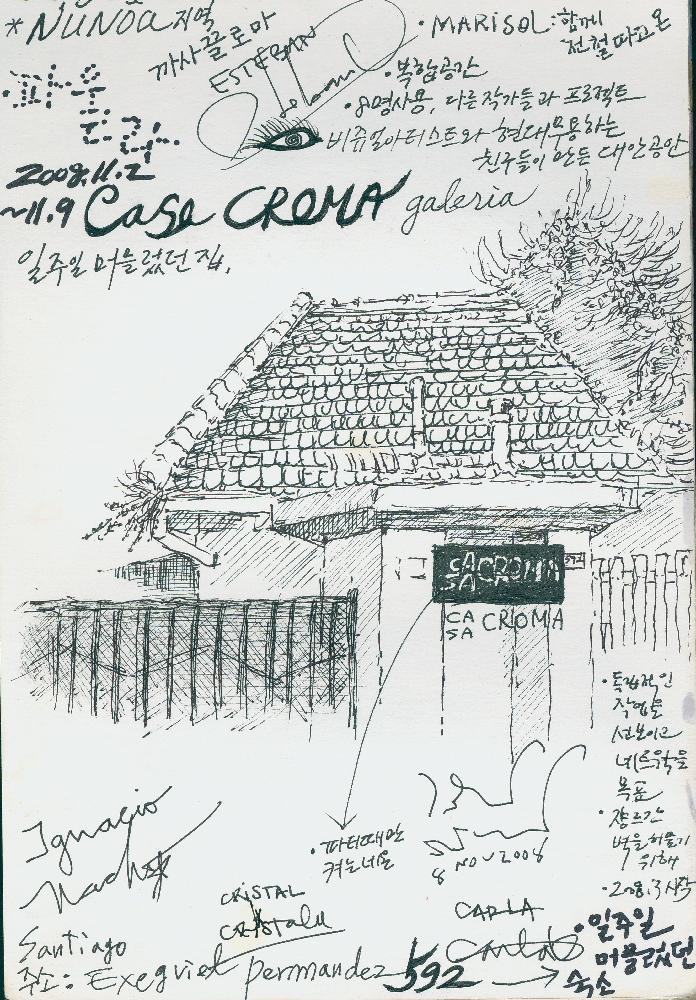 * NuNoa 지역
까사끌로마
ESTEBAN
• MARISOL : 함께
전철 타고 온
• 복합공간
• 8명사용, 다른 작가들과 프로젝트
비쥬얼아티스트와 현대무용하는
친구들이 만든 대안공간
2008.11.2
~11.9 Casa CROMA galeria
일주일 머물렀던 집.
CA
SA CROMA
CA
SA CROMA
• 독립적인
작업을
선보이고
네트웍을
목표
• 쟝르간
벽을 허물기
위해
• 2008.3 시작
• 파티때만
켜는 네온
8 NOV 2008
Ignacio
Nacho
CRISTAL
CARLA
Carla
Santiago
주소: Exequiel Permandez 592 →
• 일주일
머물렀던
숙소